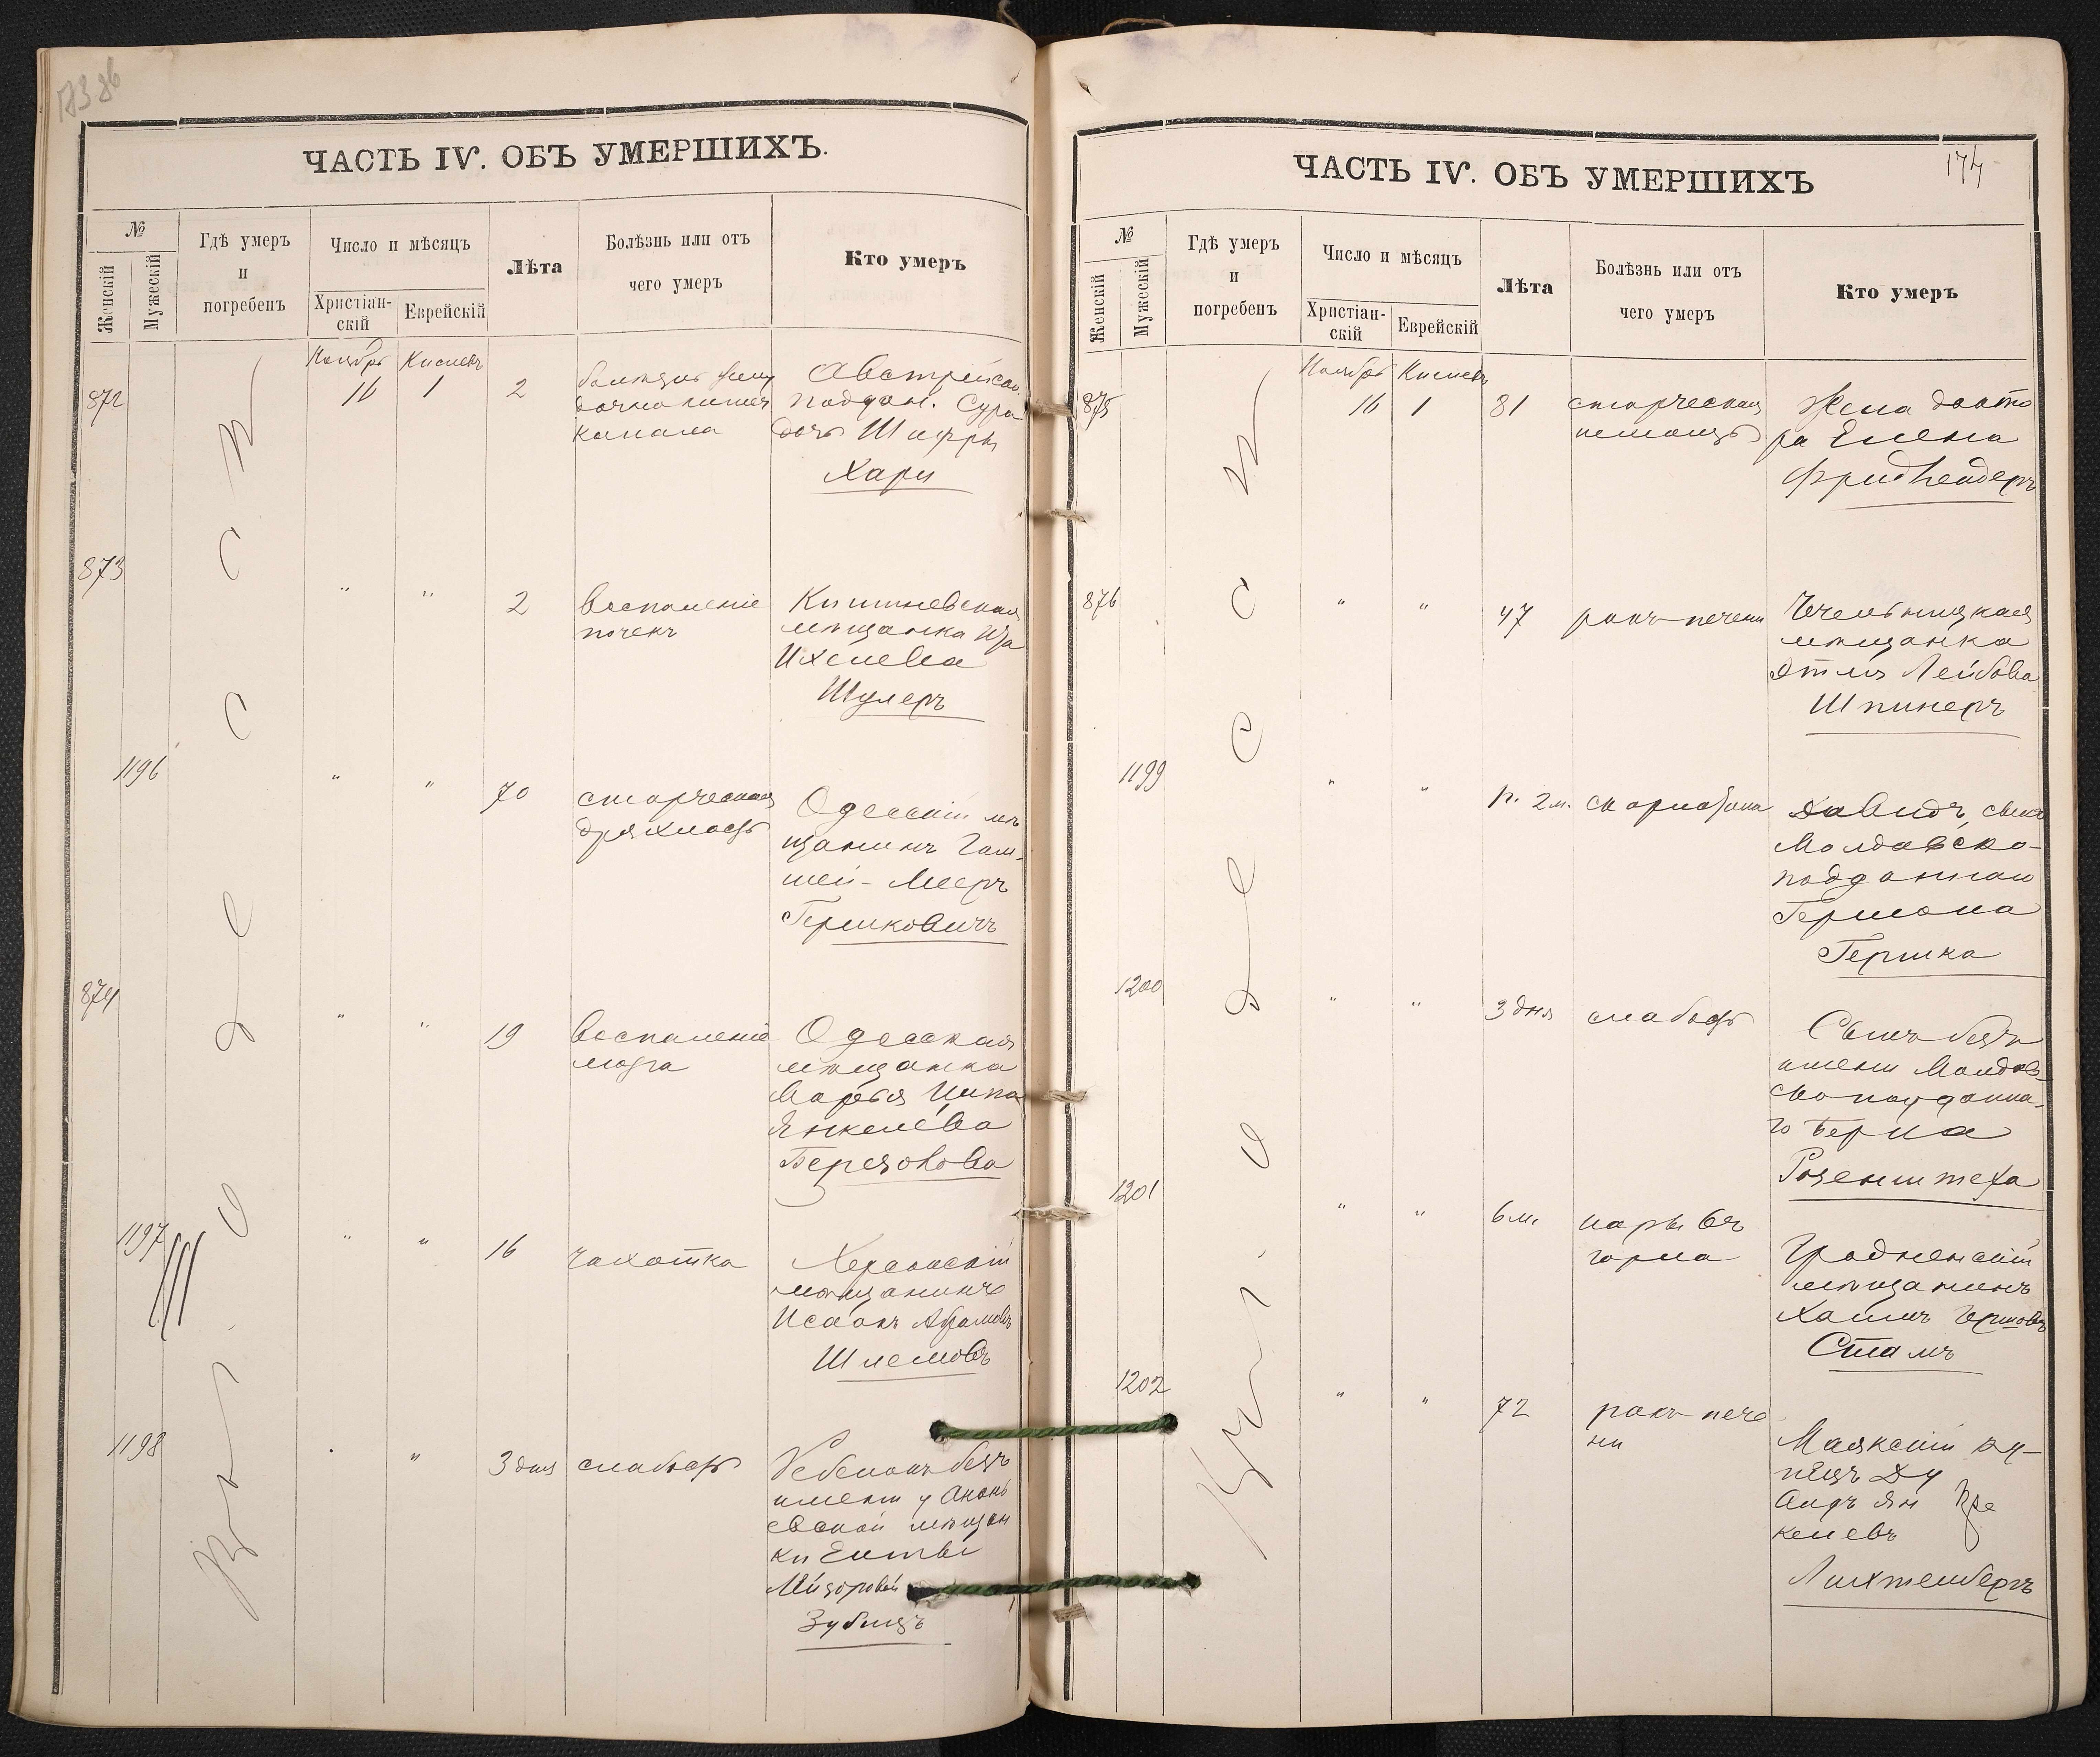 ЧАСТЬ IV. ОБЪ УМЕРШИХЪ.
№
Женскій
Мужескій
Гдѣ умеръ
и
погребенъ
Число и мѣсяцъ
Христіан-
скій
Еврейскій
Лѣта
Болѣзнь или отъ
чего умеръ
Кто умеръ
Ноябрь Кислевъ
872 16 1 2
канала
Австрійско
поддан. Сура
дочь Шифры
Хари
873 " " 2 Воспаленіе
почекъ
Кишиневская
мѣщанка
Ихелева
Шулеръ
1196 " " 70 старческая
дряхлость
Одесскій мѣ
щанинъ
Мееръ
Гершковичъ
874 " " 19 Воспаленіе
мозга
Одесская
мѣщанка
Марья Ципа
Янкелева
Березовова
1197 " " 16 чахотка
Херсонскій
мѣщанинъ
Исаакъ Абрамовъ
Шлемовъ
1198 " 3 дня слабость
Ребенокъ безъ
имени у Анань
евской мѣщан
ки Енты
Зубицъ
ЧАСТЬ IV. ОБЪ УМЕРШИХЪ
174
№
Женскій
Мужескій
Гдѣ умеръ
и
погребенъ
Число и мѣсяцъ
Христіан-
скій
Еврейскій
Лѣта
Болѣзнь или отъ
чего умеръ
Кто умеръ
Ноябрь Кислевъ
875 16 1 81 старческая
немощь
Жена докто
ра Елена
876 " " 47 ракъ печени
мѣщанка
Этля Лейбова
Шпинеръ
1199 " " 2 м.
Давидъ, сынъ
Молдавско-
подданнаго
Гершона
Гершка
1200 " " 3 дня слабость
Сынъ безъ
имени Молдав-
скоподданна-
го Берка
Розенштеха
1201 " " 6 м. нарывъ
горла
Гродненскій
мѣщанинъ
Хаимъ Гершовъ
Стамъ
1202 " " 72 ракъ пече
ни
Маякскій ку-
пецъ Ду
келевъ
Лихтенбергъ